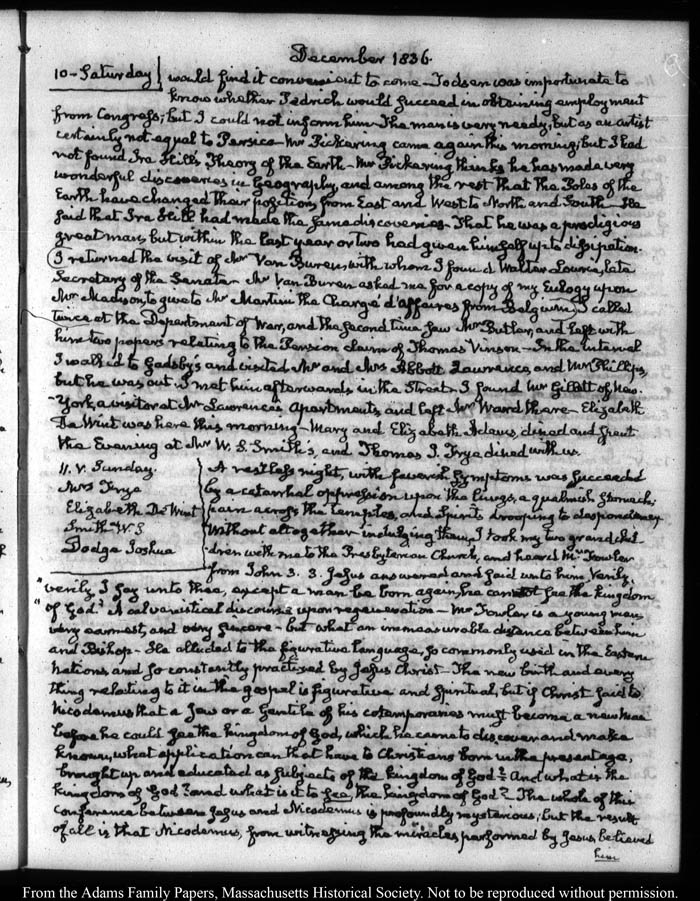 December 1836.
10 - Saturday} would find it convenient to come - Todsen was importunate to
know whether Pedrick would succeed in obtaining employment
from Congress; but I could not inform him. The man is very needy, but as an artist
certainly not equal to Persico - Mr Pickering came again this morning; but I had
not found Ira Hill's Theory of the Earth - Mr Pickering thinks he has made very
wonderful discoveries in Geography, and among the rest that the Poles of the
Earth have changed their position, from East and West to North and South. He
said that Ira Hill had made the same discoveries - That he was a prodigious
great man, but within the last year or two had given himself up to dissipation.
I returned the visit of Mr Van Buren, with whom I found Walter Lowrie, late
Secretary of the Senate - Mr Van Buren asked me for a copy of my Eulogy upon
Mr Madison, to give to Mr Martini the Chargé d'affaires from Belgium, I called
twice at the Department of War, and the second time saw Mr Butler, and left with
him two papers relating to the Pension claim of Thomas Vinson - In the interval
I walked to Gadsby's and visited Mr and Mrs Abbott Lawrence, and Mr Phillips,
but he was out. I met him afterwards in the Street. I found Mr Gillett of New-
York, a visitor at Mr Lawrence's Apartments, and left Mr Ward there - Elizabeth
De Wint was here this morning - Mary and Elizabeth Adams, dined and spent
the Evening at Mr W. S. Smith's, and Thomas J. Frye, dined with us.
11. V. Sunday.
Mrs Frye
Elizabeth De Wint
Smith W. S
Dodge Joshua
A restless night, with feverish symptoms was succeeded
by a catarrhal oppression upon the lungs, a qualmish stomach,
pain across the temples, and Spirits drooping to despondency
Without altogether indulging them, I took my two grandchil-
dren with me to the Presbyterian Church, and heard Mr Fowler
from John 3. 3. Jesus answered and said unto him Verily,
"verily, I say unto thee, except a man be born again, he cannot see the kingdom
"of God." A calvinistical discourse upon regeneration - Mr Fowler is a young man
very earnest, and very sincere - but what an immeasurable distance between him
and Bishop - He alluded to the figurative language, so commonly used in the Eastern
Nations and so constantly practised by Jesus Christ - The new birth and every
thing relating to it in the gospel is figurative and spiritual; but if Christ said to
Nicodemus that a Jew or a Gentile of his cotemporaries must become a new man
before he could see the kingdom of God, which he came to discover and make
known, what application can that have to Christians born in the present age,
brought up and educated as subjects of the kingdom of God? And what is the
kingdom of God? and what is it to see, the kingdom of God? The whole of this
conference between Jesus and Nicodemus is profoundly mysterious; but the result
of all is that Nicodemus, from witnessing the miracles performed by Jesus, believed
him
From the Adams Family Papers, Massachusetts Historical Society. Not to be reproduced without permission.